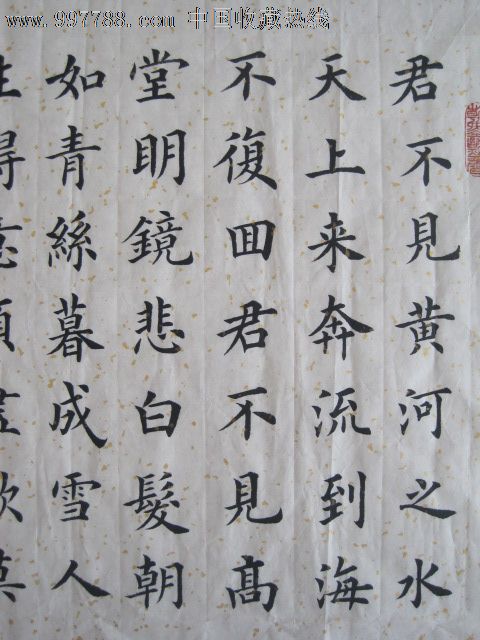 www.997788.com 中国收藏热线
君不見黄河之水
天上来奔流到海
不復回君不見高
堂明鏡悲白髮朝
如青絲暮成雪人
生得意須盡歡莫